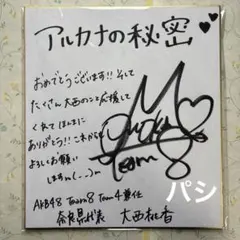 アルカナの秘密
おめでとうございます!! そして
たくさん 大西のこと応援して
くれて ほんまに
ありがとう!! これからも
よろしくお願い
しますm(_ _)m
Team 8
AKB48 Team8 Team4兼任
奈良県代表 大西桃香
パシ